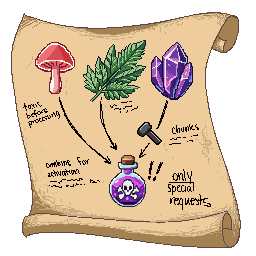 toxic
before
processing
chunks
combine for
activation
!! only
special
requests